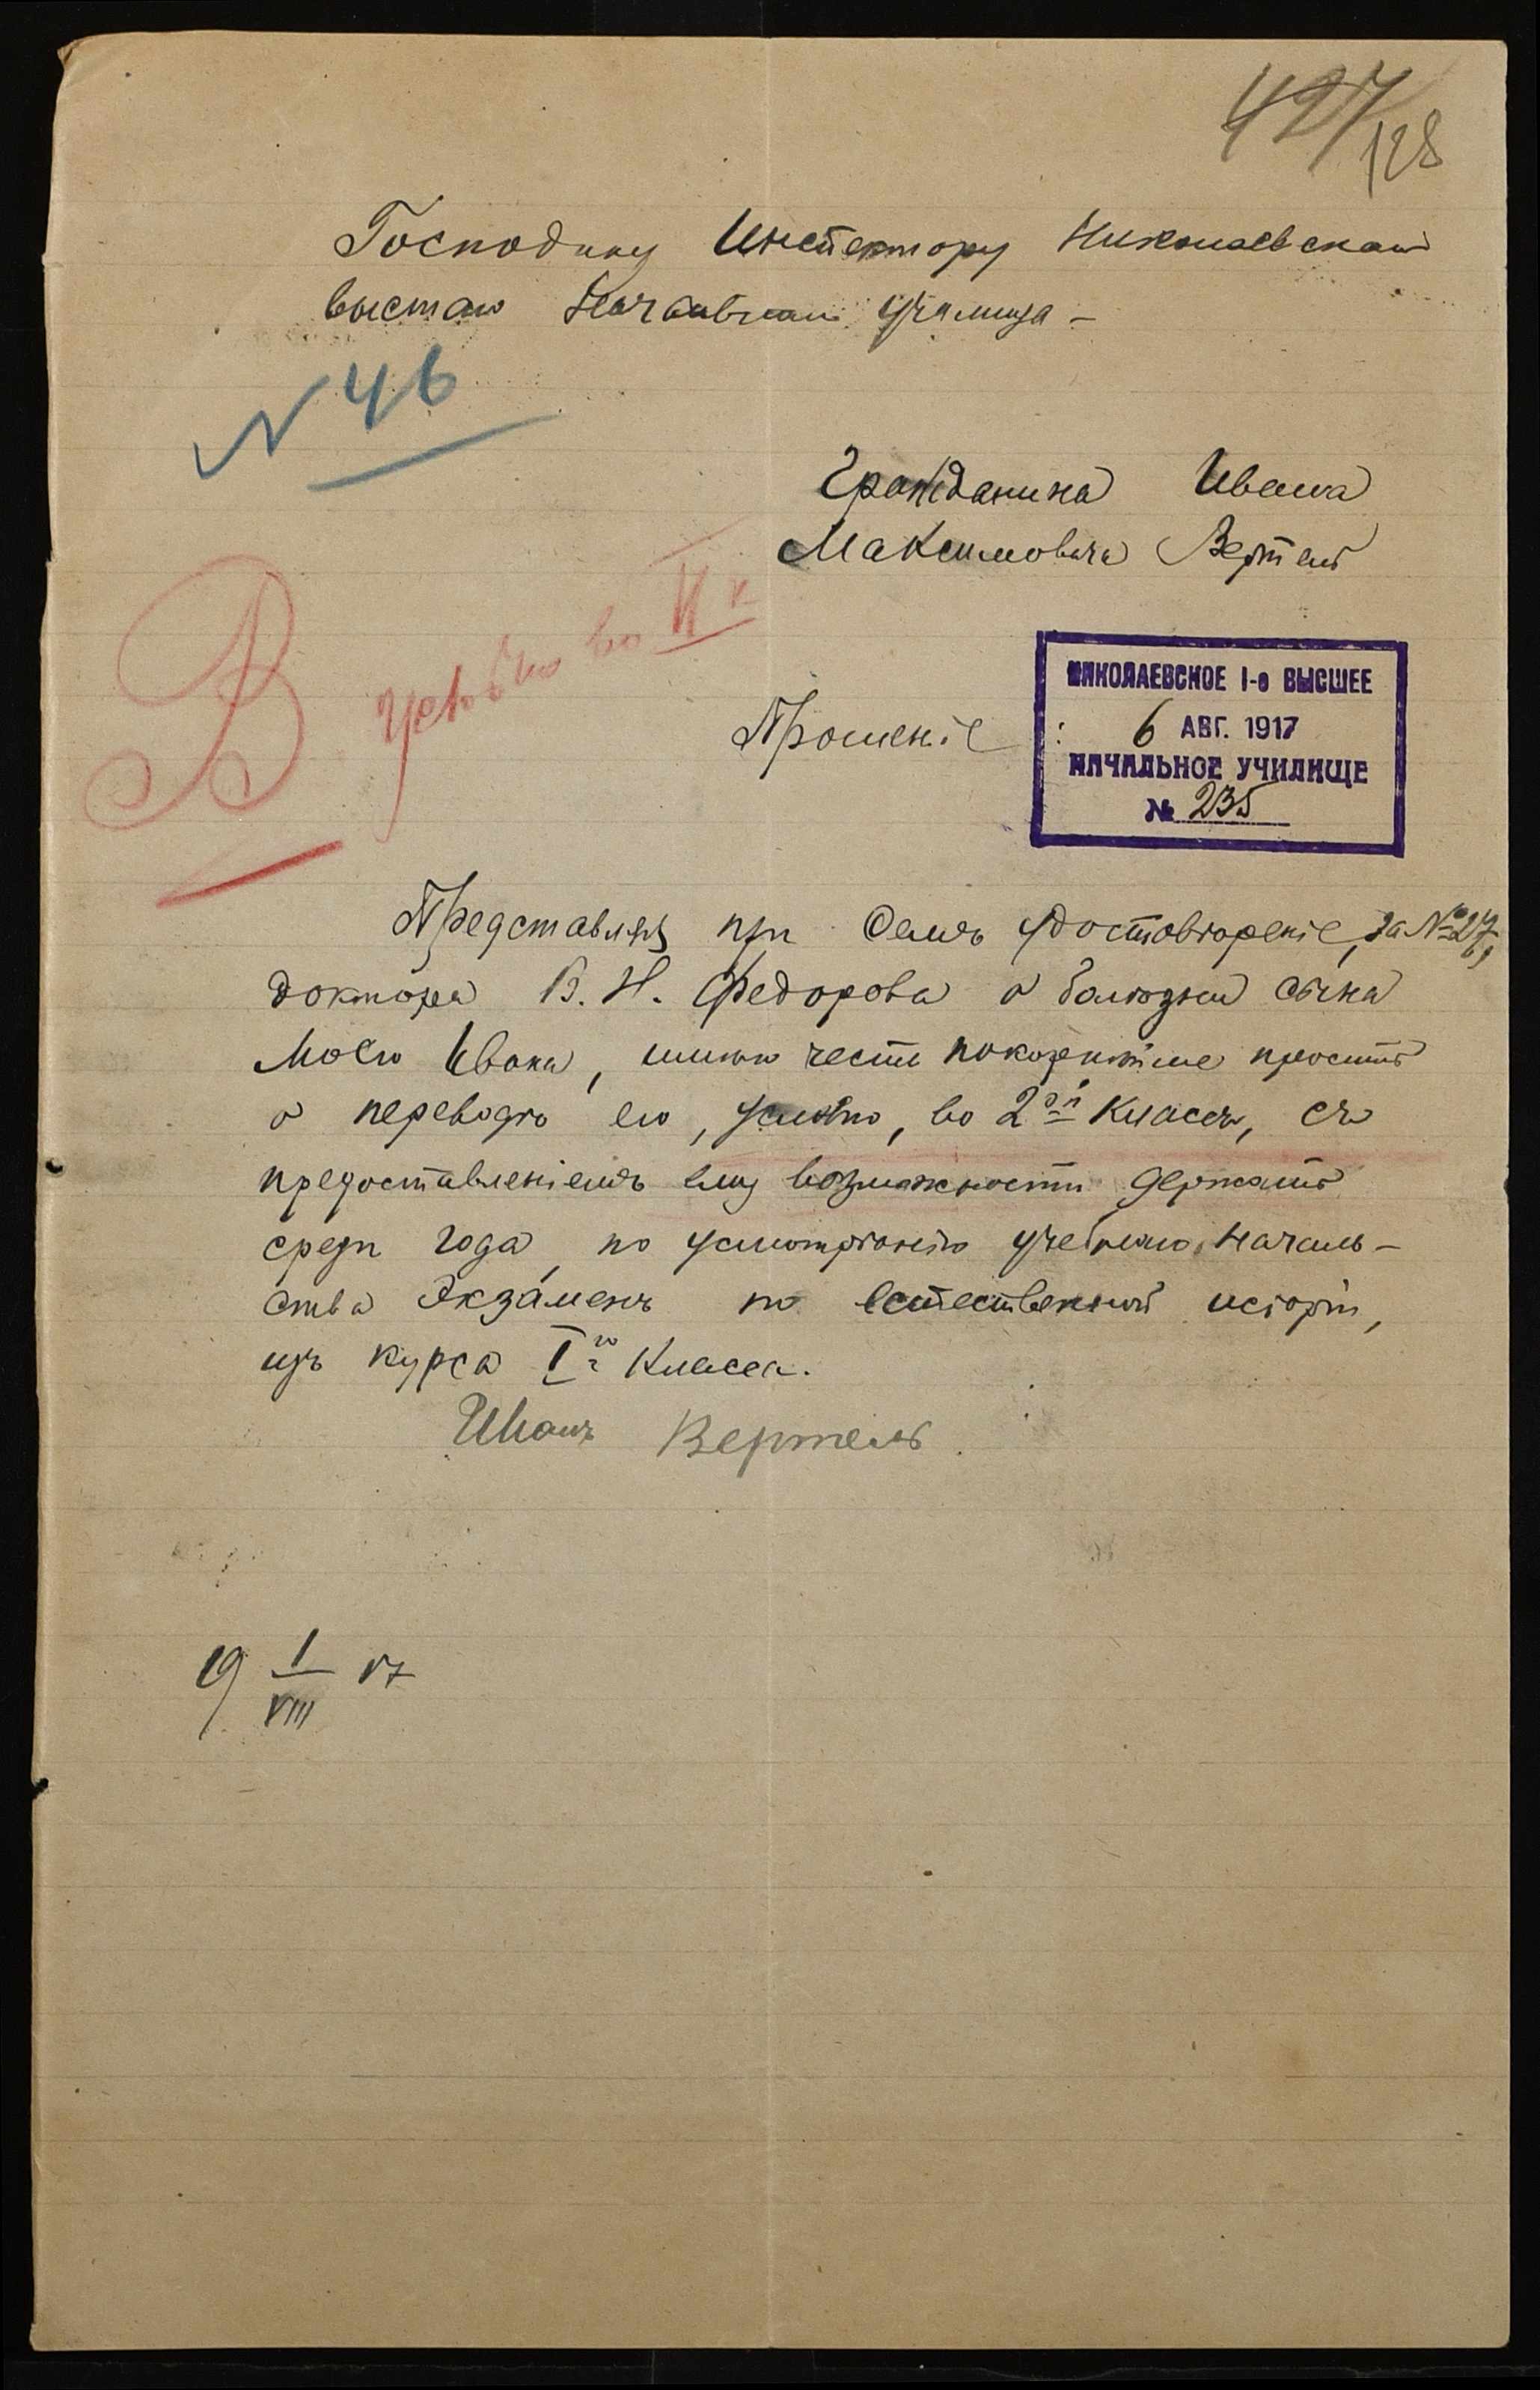 427
128
Господину Инспектору Николаевскаго
высшаго Начальнаго Училища –
N 46
Гражданина Ивана
Максимовича Вертель
В
условно во II к
Прошеніе
НИКОЛАЕВСКОЕ I-е ВЫСШЕЕ
6 АВГ. 1917
НАЧАЛЬНОЕ УЧИЛИЩЕ
№ 235
Представляя при семъ удостовѣреніе, за №
доктора В. Н. Федорова о болѣзни сына
моего Ивана, имѣю честь покорнѣйше просить
о переводѣ его, условно, во 2ой классъ, съ
предоставленіемъ ему возможности держать
среди года, по усмотрѣнію учебнаго началь-
ства экзаменъ по естественной исторіи,
изъ курса Iго класса.
Иванъ Вертель.
19 I/VIII 17